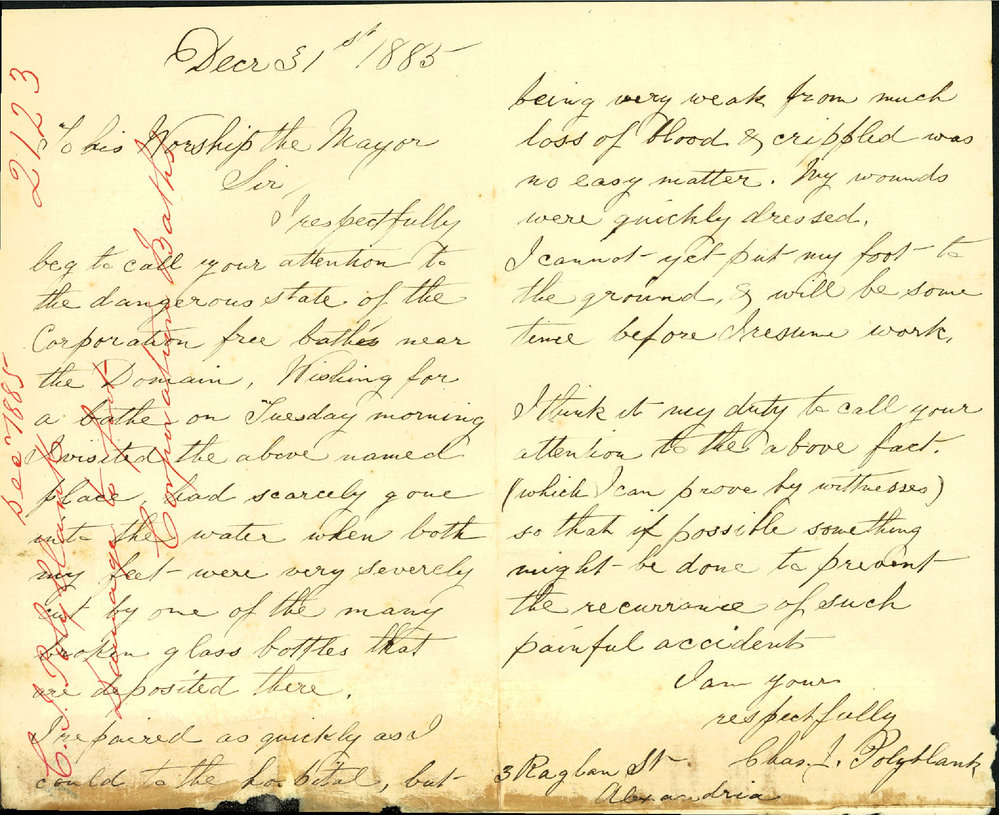 Decr 31st 1885
To his Worship the Mayor
Sir
I respectfully
beg to call your attention to
the dangerous state of the
Corporation free bathes near
the Domain, Wishing for
a bathe on Tuesday morning
I visited the above named
place, had scarcely gone
into the water when both
my feet were very severely
cut by one of the many
broken glass bottles that
are deposited there.
I repaired as quickly as I
could to the hospital, but
being very weak from much
loss of blood & crippled was
no easy matter. My wounds
were quickly dressed.
I cannot yet put my foot to
the ground, & will be some
time before I resume work.
I think it my duty to call your
attention to the above fact.
(which I can prove by wittnesses)
so that if possible something
might be done to prevent
the recurrance of such
painful accident
I am your
respectfully
Chas. J. Polyblank
3 Raglan St.
Alexandria
2123
Dec 1885
C. J. Polyblank
Damage to feet
Corporation Baths